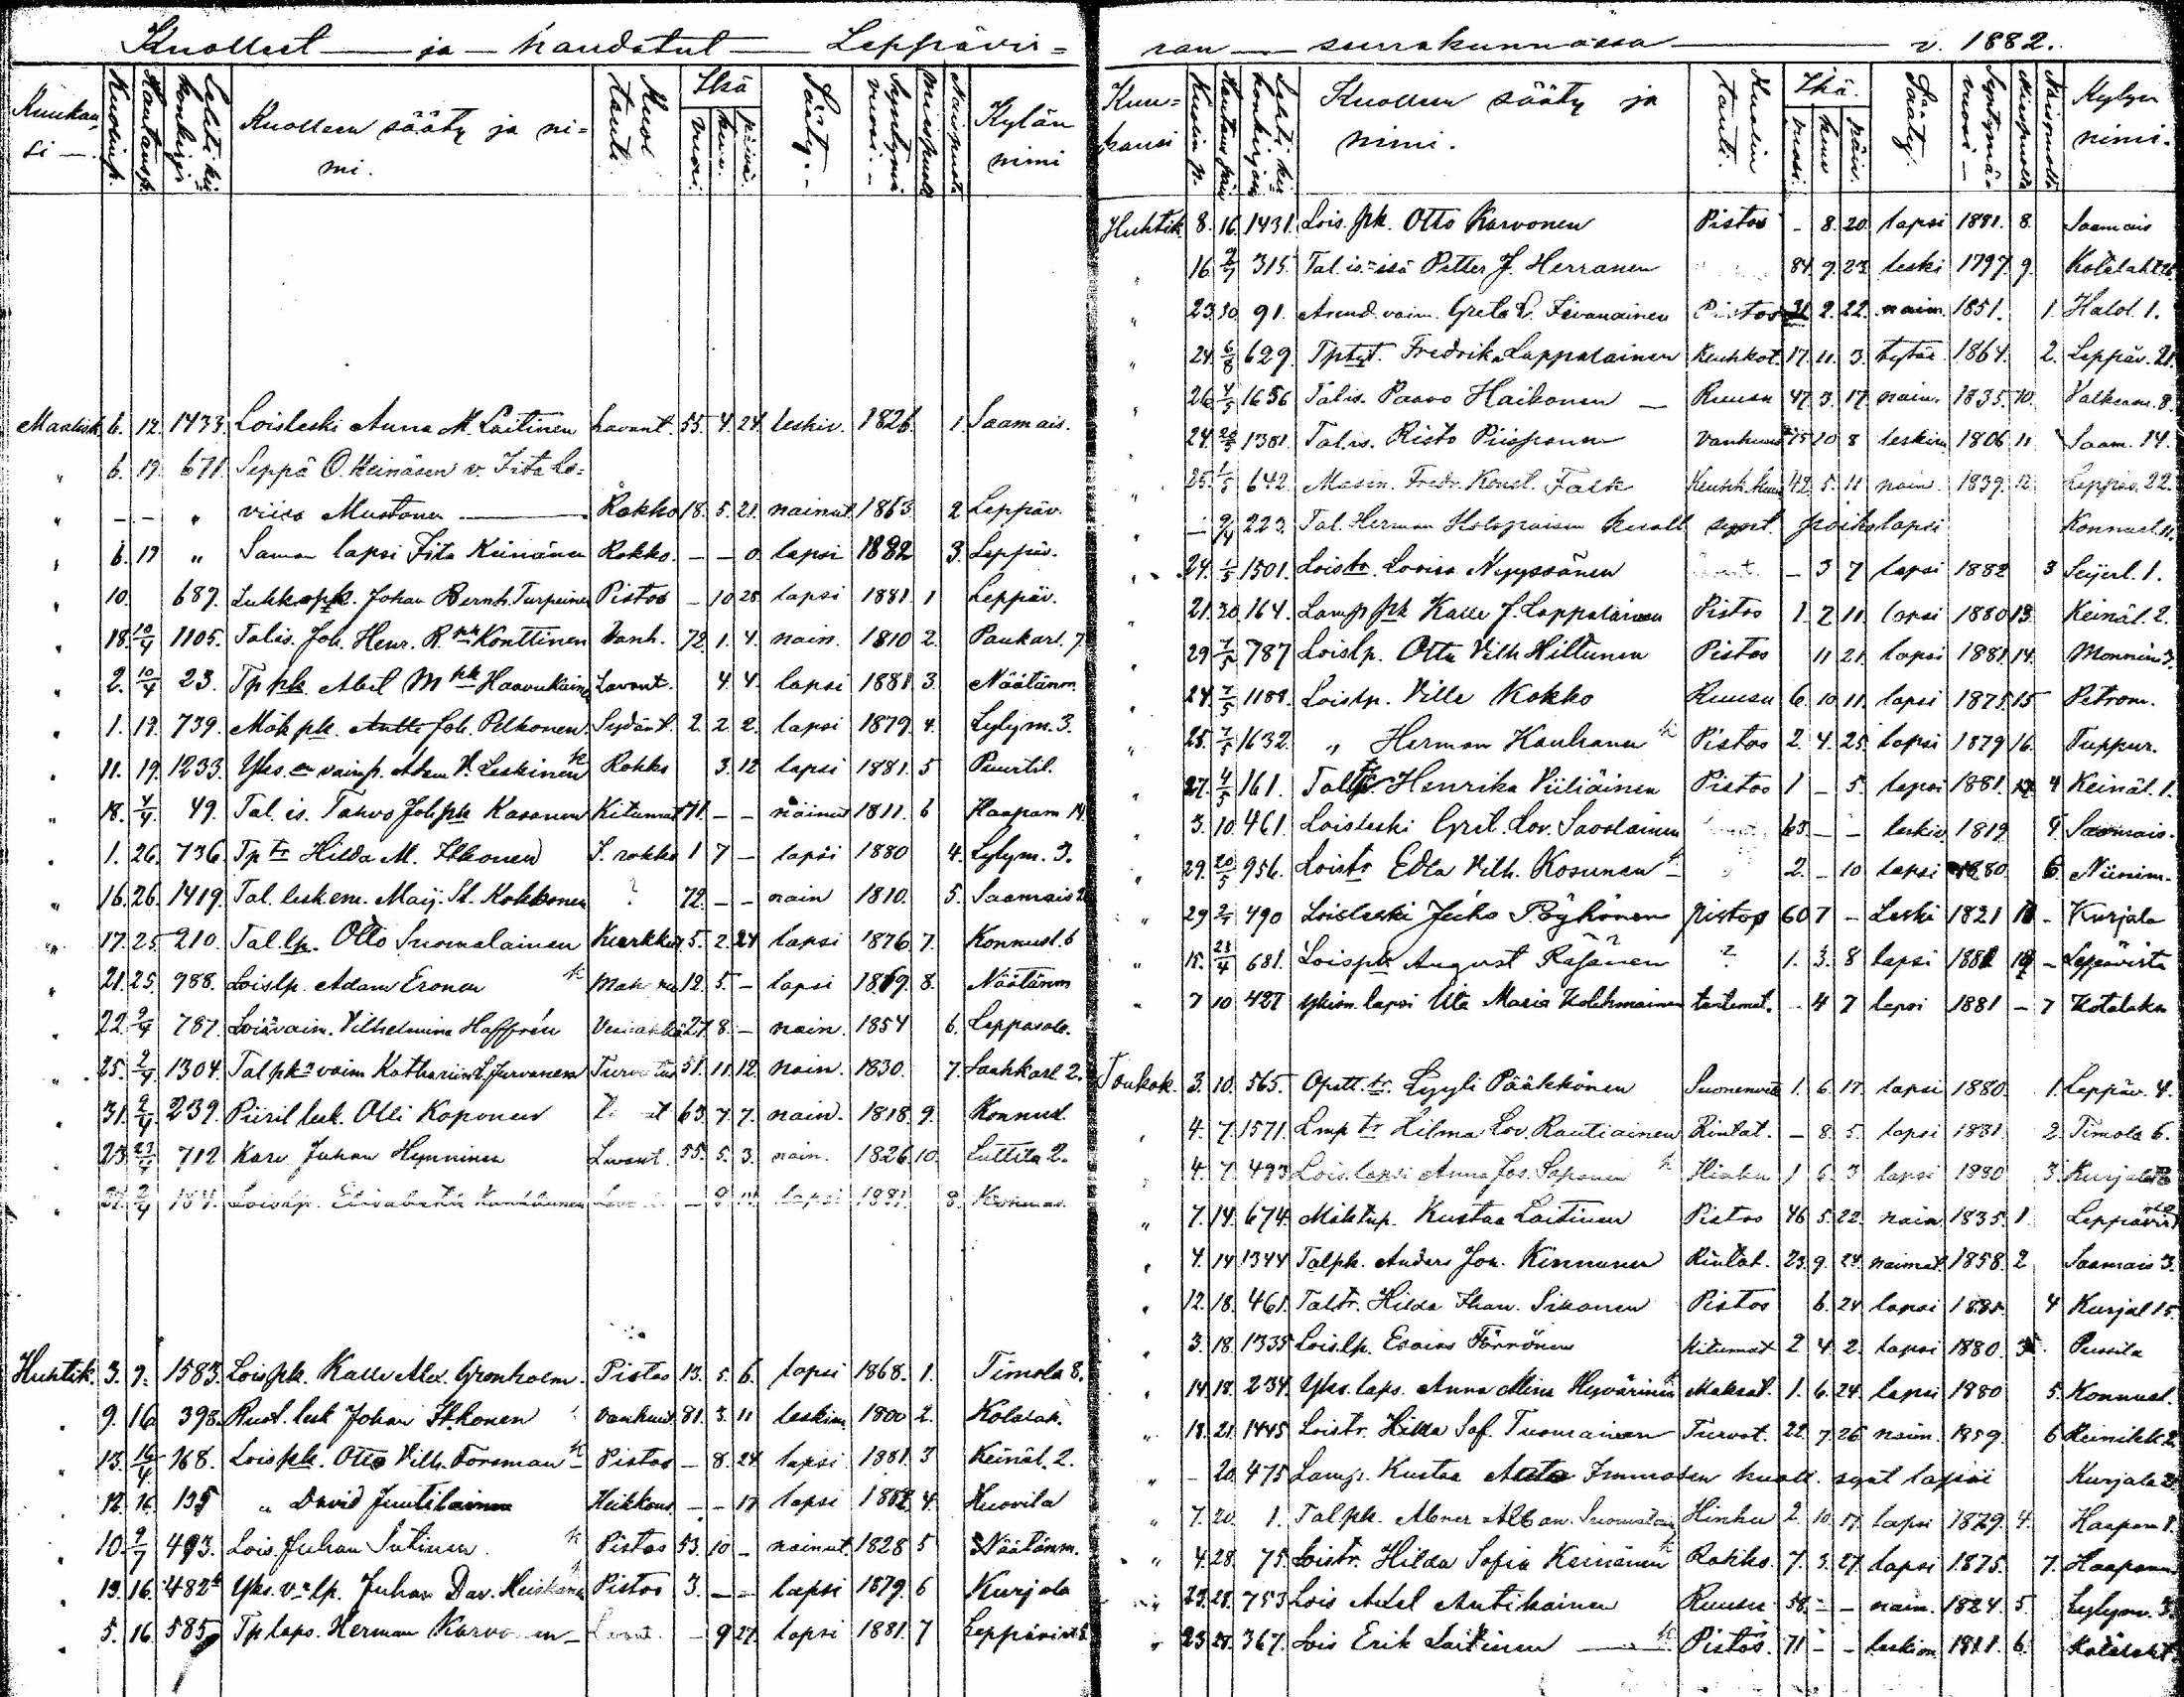 Kuolleet — ja — haudatut — Leppävir=
Kuukau=
si —
Kuolinp.
Hautausp.
Lehti ki=
konkirja
Kuolleen sääty ja ni=
mi.
Kuol
tauti
Ikä
vuosi.
kuu.
päivä.
Sääty.
Syntymä
vuosi.
Miespuoli
Naispuoli
Kylän
nimi
Maalisk. 6. 12. 1433. Loisleski Anna M. Laitinen Lavant. 55. 4. 24. leskiv. 1826. 1. Saamais.
" 6. 19. 671. Seppä O. Keinäsen v. Fita Lo=
" — — " viisa Mustonen — Rokko 18. 5. 21. nainut 1863 2 Leppäv.
" 6. 19 " Saman lapsi Fita Keinänen Rokko. — — 0. lapsi 1882 3. Leppäv.
" 10. 687. Lukk. pk. Johan Bernh. Turpeinen Pistos — 10 28 lapsi 1881. 1 Leppäv.
" 18. 10/4 1105. Talis. Joh. Henr. R. pk Konttinen Vanh. 72. 1. 4. nain. 1810 2. Paukarl. 7.
" 2. 10/4 23. Tp pk. Abel M pk Haavukainen Lavant. 4. 4. lapsi 1881 3. Näätänm.
" 1. 19. 739. Mök pk. Antti Joh. Pelkonen. Sydänt. 2. 2 2. lapsi 1879. 4. Lylym. 3.
" 11. 19. 1233. Yks. vaimp. Adam V. Leskinen Rokko 3. 12 lapsi 1881. 5 Puurtil.
" 18. 4/4. 49. Tal. is. Tahvo Joh pk Kasanen Kitumat 71. — — nainut 1811. 6 Haapam 14.
" 1. 26. 736. Tp tr Hilda M. Itkonen S. rokko 1 7 — lapsi 1880 4. Lylym. 3.
" 16. 26. 1419. Tal. lesk. em. Maij. St. Kokkonen ? 72. — — nain 1810. 5. Saamais 2
" 17. 25. 210. Tal. lp. Otto Suomalainen Kurkku 5. 2. 24 lapsi 1876 7. Konnusl. 6
" 21. 25. 988. Loislp. Adam Eronen 12. 5. — lapsi 1869. 8. Näätänm
" 22. 2/4 787. Loisvaim. Vilhelmina Haffrén 27. 8. — nain. 1854 6. Leppäsalo.
" 25. 2/4. 1304. Tal pk vaim Katharina L. Jurvanen Turvotus 51. 11. 12. nain. 1830. 7. Saahkarl. 2.
" 31. 2/4. 239. Piiril lesk. Olli Koponen 63. 7. 7. nain. 1818. 9. Konnusl.
" 23. 23/4 712 Karv. Juhan Hynninen Lavant. 55. 5. 3. nain. 1826. 10. Luttila 2.
" 2/4 184. Loislp. Elisabeth — 9. lapsi 1881. 8.
Huhtik. 3. 9. 1583. Lois pk. Kalle Alex. Gronholm. Pistos 13. 5. 6. lapsi 1868. 1. Timola 8.
" 9. 16 398. Rust. lesk Johan Itkonen Vanhuus. 81. 3. 11 leskim. 1800 2. Kotalah.
" 13. 16/4 168. Lois pk. Otto Vilh. Forsman Pistos — 8. 24 lapsi 1881. 3 Keinäl. 2.
" 12. 16. 135 " David Juutilainen Keikkous — — 17 lapsi 1882 4. Kuovila
" 10. 9/7 493. Lois. Juhan Sutinen. Pistos 53. 10 — nainut. 1828 5 Näätänm.
" 13. 16. 482 Yks. v. lp. Juhan Dav. Huiskonen Pistos 3. — — lapsi 1879. 6 Kurjala
" 5. 16. 585 Tp laps. Herman Karvonen — Lavant. — 9 27. lapsi 1881. 7 Leppävirt.
ran — seurakunnassa — v. 1882.
Kuu=
kausi
Kuolin p.
Hautaus päiv
Lehti ki=
konkirjan
Kuolleen sääty ja
nimi.
Kuolin
tauti.
Ikä.
vuosi.
kuus
päiv.
Sääty.
Syntymä=
vuosi —
Miespuolia
Naispuolia
Kylyn
nimi.
Huhtik. 8. 16. 1431. Lois. pk. Otto Karvonen Pistos — 8. 20. lapsi 1881. 8. Saamais
" 16. 2/7 315. Tal. is. isä Petter J. Herranen 84. 7. 23. leski 1797. 9. Kotalaht.
" 23. 30. 91. Arend. vaim. Greta L. Pistos 31 2. 22. nain. 1851. 1. Halol. 1.
" 24. 6/8 629. Tptyt. Fredrika Lappalainen Keuhkot. 17. 11. 3. tytär. 1864. 2. Leppäv. 21.
" 26. 7/5 1656 Talis. Paavo Haikonen — Ruusu 47. 3. 17. nain. 1835. 10. Valkeam. 8.
" 24. 26/5 1381. Talis. Risto Piisponen Vanhuus 75 10 8 leskim 1806 11 Saam. 14.
" 25. 1/5 642. Masin. Fredr. Konst. Falk 42. 5. 11 nain. 1839. 12 Leppäv. 22.
" — 2/4 223. Tal. Herman Holopaisen kuoll. synt. poikalapsi Konnusl. 11.
" 24. 1/5 1501. Loistr. Lovisa Nyyssönen — 3 7 lapsi 1882 3 Seijerl. 1.
" 21. 30. 164. Lamp pk Kalle J. Lappalainen Pistos 1. 2 11. lapsi 1880 13. Keinäl. 2.
" 29 7/5 787 Loislp. Otto Vilh Hiltunen Pistos 11 21. lapsi 1881. 14. Monnins. 3.
" 24. 7/5 1188. Loislp. Ville Kokko Ruusu 6. 10 11. lapsi 1875. 15 Petrom.
" 25. 7/5 1632. " Herman Kauhanen Pistos 2. 4. 25. lapsi 1879 16. Tuppur.
" 27. 4/5 161. Taltr. Henrika Viiliäinen Pistos 1 — 5. lapsi 1881. 4 Keinäl. 1.
" 3. 10. 461. Loisleski Gret. Lov. Savolainen 63. — — leskiv. 1819 5. Saamais.
" 29. 20/5 956. Loistr Edla Vilh. Kosunen — 2. — 10 lapsi 1880. 6. Niinim.
" 29 2/5 490 Loisleski Jeeko Pöyhönen pistos 60 7 — Leski 1821 18 — Kurjala
" 15. 23/4 681. Lois pk August Räsänen ? 1. 3. 8 lapsi 1881 19 — Leppävirta
" 7 10 427 yksin. lapsi Uta Maria Kolehmainen tautemat. — 4 7 lapsi 1881 — 7 Kotalaks
Toukok. 3. 10. 565. Opett. tr. Lyyli Pääkkönen Suonenveto 1. 6. 17. lapsi 1880. 1. Leppäv. 4.
" 4. 7. 1571. Lmp tr Hilma Lov. Rautiainen Rintat. — 8. 5. lapsi 1881. 2 Timola 6.
" 4. 7. 493 Lois. lapsi Anna Jos. Soponen Hinku 1 6 3 lapsi 1880 3. Kurjala
" 7. 14. 674. Mäktup. Kustaa Laitinen Pistos 46 5. 22. nain 1835. 1. Leppävir
" 4. 14 1344 Talpk. Anders Joh. Kinnunen Rintat. 23. 9. 24. naimat 1858. 2 Saamais 3.
" 12. 18. 461. Taltr. Hilda Ihan. Sikanen Pistos 6. 24 lapsi 1881. 4 Kurjal 15.
" 3. 18. 1335 Lois.lp. Esaias Törrönen kitumat 2 4 2. lapsi 1880. 3. Puurila
" 14. 18. 234. Yks. laps. Anna Miina Hyvärinen Maksat. 1. 6. 24. lapsi 1880 5. Konnusl.
" 18. 21. 1445 Loistr. Hilda Sof. Tuomainen Turvot. 22. 7. 26 nain. 1859. 6 Reinikk. 2.
" — 20. 475 Lampi. Kustaa Immosen kuoll. synt lapsi Kurjala 2.
" 7. 20. 1. Talpk. Abner Alban. Suomalain Hinku 2. 10. 17. lapsi 1879. 4. Haapam 1.
" 4. 28. 75. Loistr. Hilda Sofia Keinänen Rokko. 7. 3. 27. lapsi 1875. 7. Haapam
" 22. 28. 753 Lois Axel Antikainen Ruusu 58. — — nain. 1824. 5. Lylym. 3.
" 23. 28. 367. Lois Erik Laitinen — Pistos. 71 — — leskim 1811. 6. Kotalaht